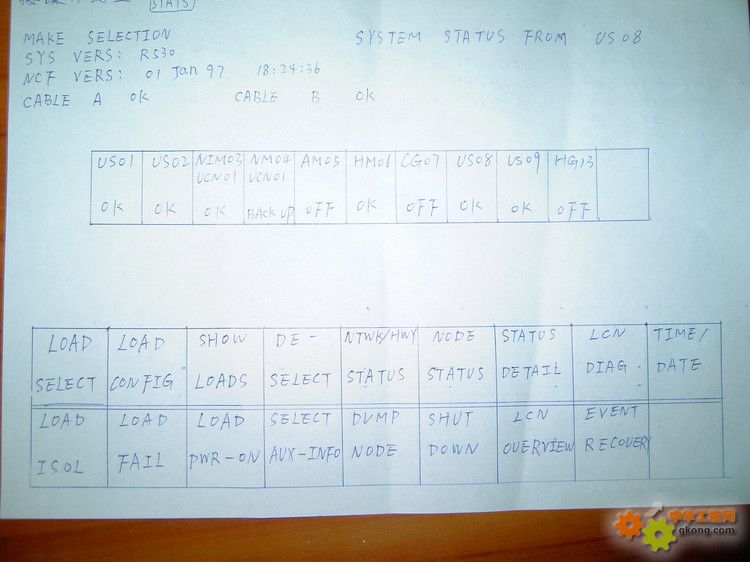 STATS
MAKE SELECTION SYSTEM STATUS FROM US08
SYS VERS: R530
NCF VERS: 01 Jan 97 18:24:36
CABLE A OK CABLE B OK
US01 US02 NIM03 NM04 AM05 HM06 CG07 US08 US09 HG13
UCN01 UCN01
OK OK OK BACKUP OFF OK OFF OK OK OFF
LOAD LOAD SHOW DE- NTWK/HWY NODE STATUS LCN TIME/
SELECT CONFIG LOADS SELECT STATUS STATUS DETAIL DIAG. DATE
LOAD LOAD LOAD SELECT DUMP SHUT LCN EVENT
ISOL FAIL PWR-ON AUX-INFO NODE DOWN OVERVIEW RECOVERY
中华工控网
gkong.com